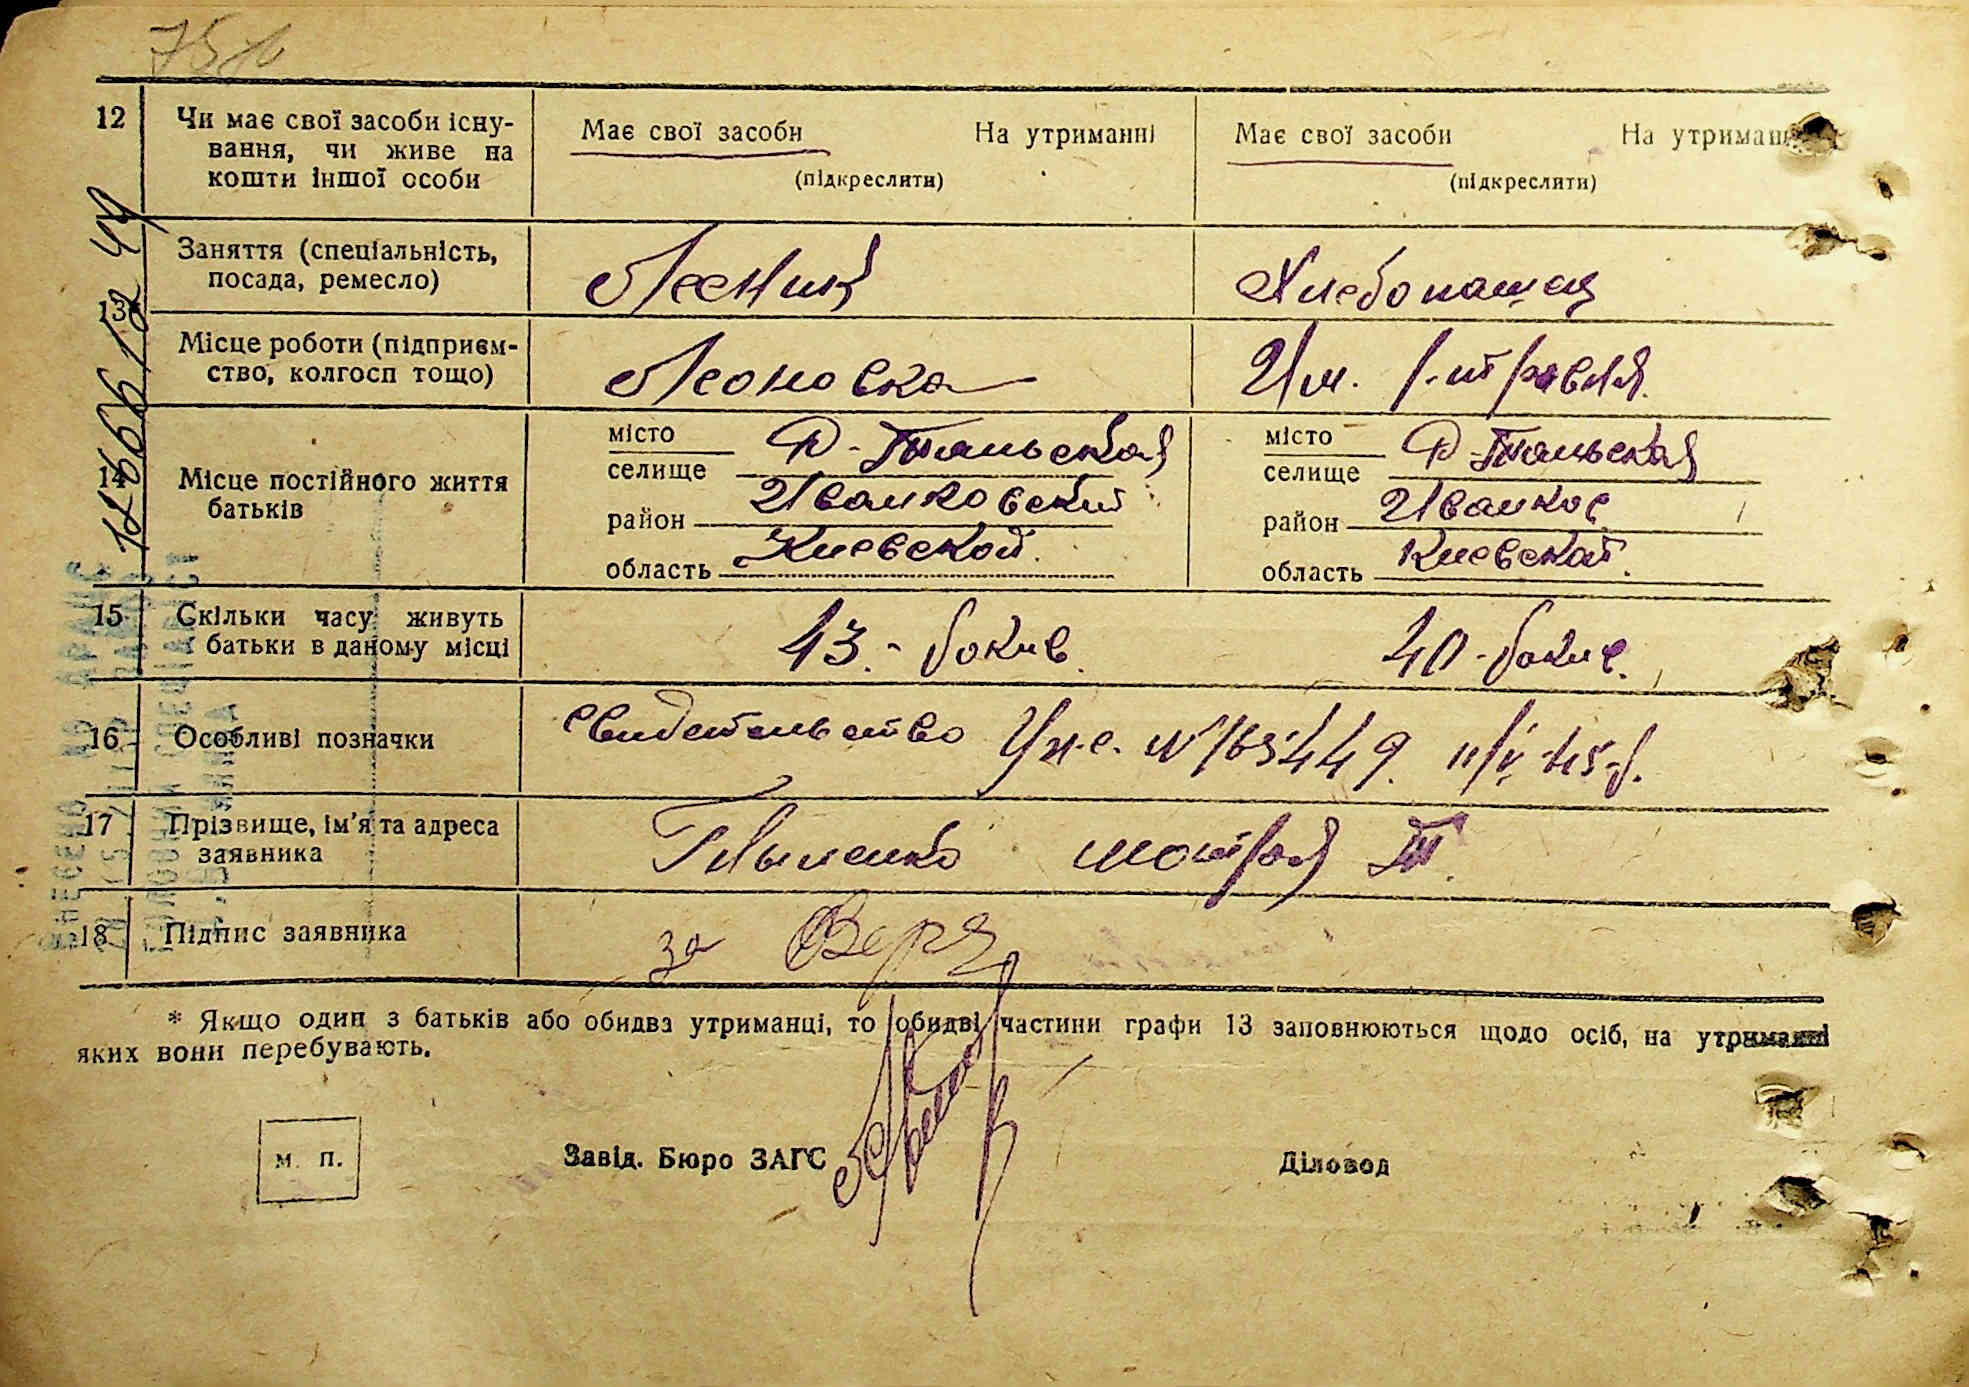 12 Чи має свої засоби існу-
вання, чи живе на
кошти іншої особи
Має свої засоби На утриманні
(підкреслити)
Має свої засоби На утриманні
(підкреслити)
13
Заняття (спеціальність,
посада, ремесло)
Лесник
Хлебопашец
Місце роботи (підприєм-
ство, колгосп тощо)
Леоновка
Им. 1-й травня.
14 Місце постійного життя
батьків
місто
селище
Р-Тальская
район Иванковский
область Киевской.
місто
селище
Р-Тальская
район Иванков
область Киевской.
15 Скільки часу живуть
батьки в даному місці
43.- Рокив.
40-Рокив.
16 Особливі позначки
Свидетельство № 165449.
17 Прізвище, ім'я та адреса
заявника
мотря Т.
18 Підпис заявника
за
* Якщо один з батьків або обидва утриманці, то обидві частини графи 13 заповнюються щодо осіб, на утриманні
яких вони перебувають.
м. п.
Завід. Бюро ЗАГС
Діловод